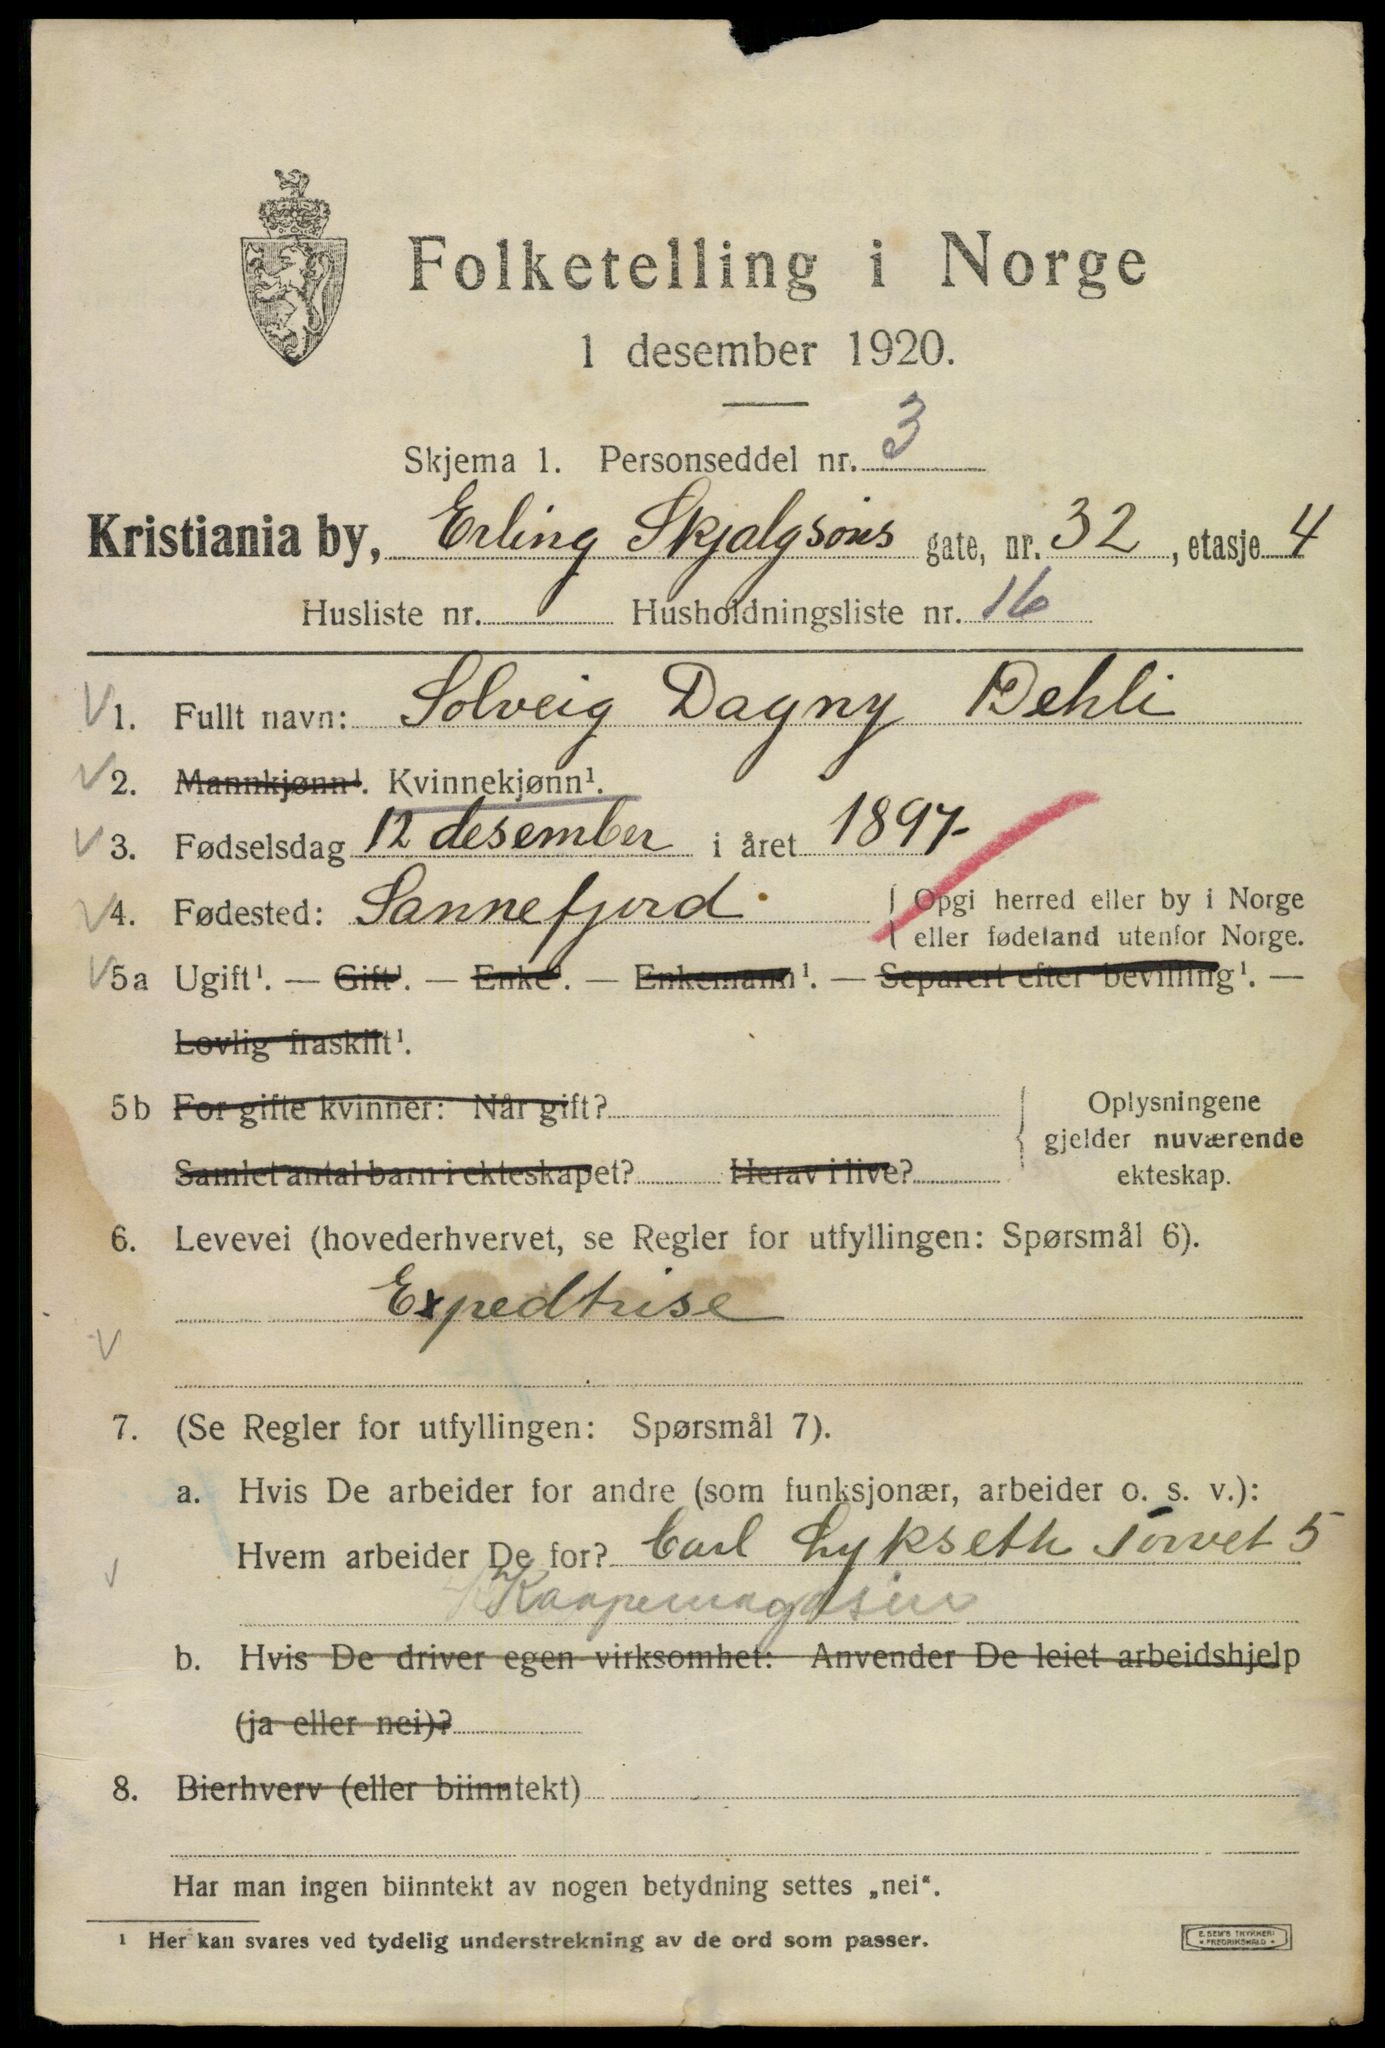 Folketelling i Norge
1 desember 1920.
Skjema 1. Personseddel nr. 3
Kristiania by, Erling Skjalgsøns gate, nr. 32, etasje 4
Husliste nr. Husholdningsliste nr. 16
1. Fullt navn: Solveig Dagny Dehli
2. Mannkjønn¹. Kvinnekjønn¹.
3. Fødselsdag 12 desember i året 1897-
4. Fødested: Sannefjord { Opgi herred eller by i Norge
eller fødeland utenfor Norge.
5a Ugift¹. — Gift¹. — Enke¹. — Enkemann¹. — Separert efter bevilling¹. —
Lovlig fraskilt¹.
5b For gifte kvinner: Når gift? Oplysningene
gjelder nuværende
Samlet antal barn i ekteskapet? Herav i live? ekteskap.
6. Levevei (hovederhvervet, se Regler for utfyllingen: Spørsmål 6).
Expedtrise
7. (Se Regler for utfyllingen: Spørsmål 7).
a. Hvis De arbeider for andre (som funksjonær, arbeider o. s. v.):
Hvem arbeider De for? Carl Lykseth Torvet 5
Kaapemagasin
b. Hvis De driver egen virksomhet: Anvender De leiet arbeidshjelp
(ja eller nei)?
8. Bierhverv (eller biinntekt)
Har man ingen biinntekt av nogen betydning settes „nei“.
¹ Her kan svares ved tydelig understrekning av de ord som passer.
E. SEM'S TRYKKERI
FREDRIKSHALD